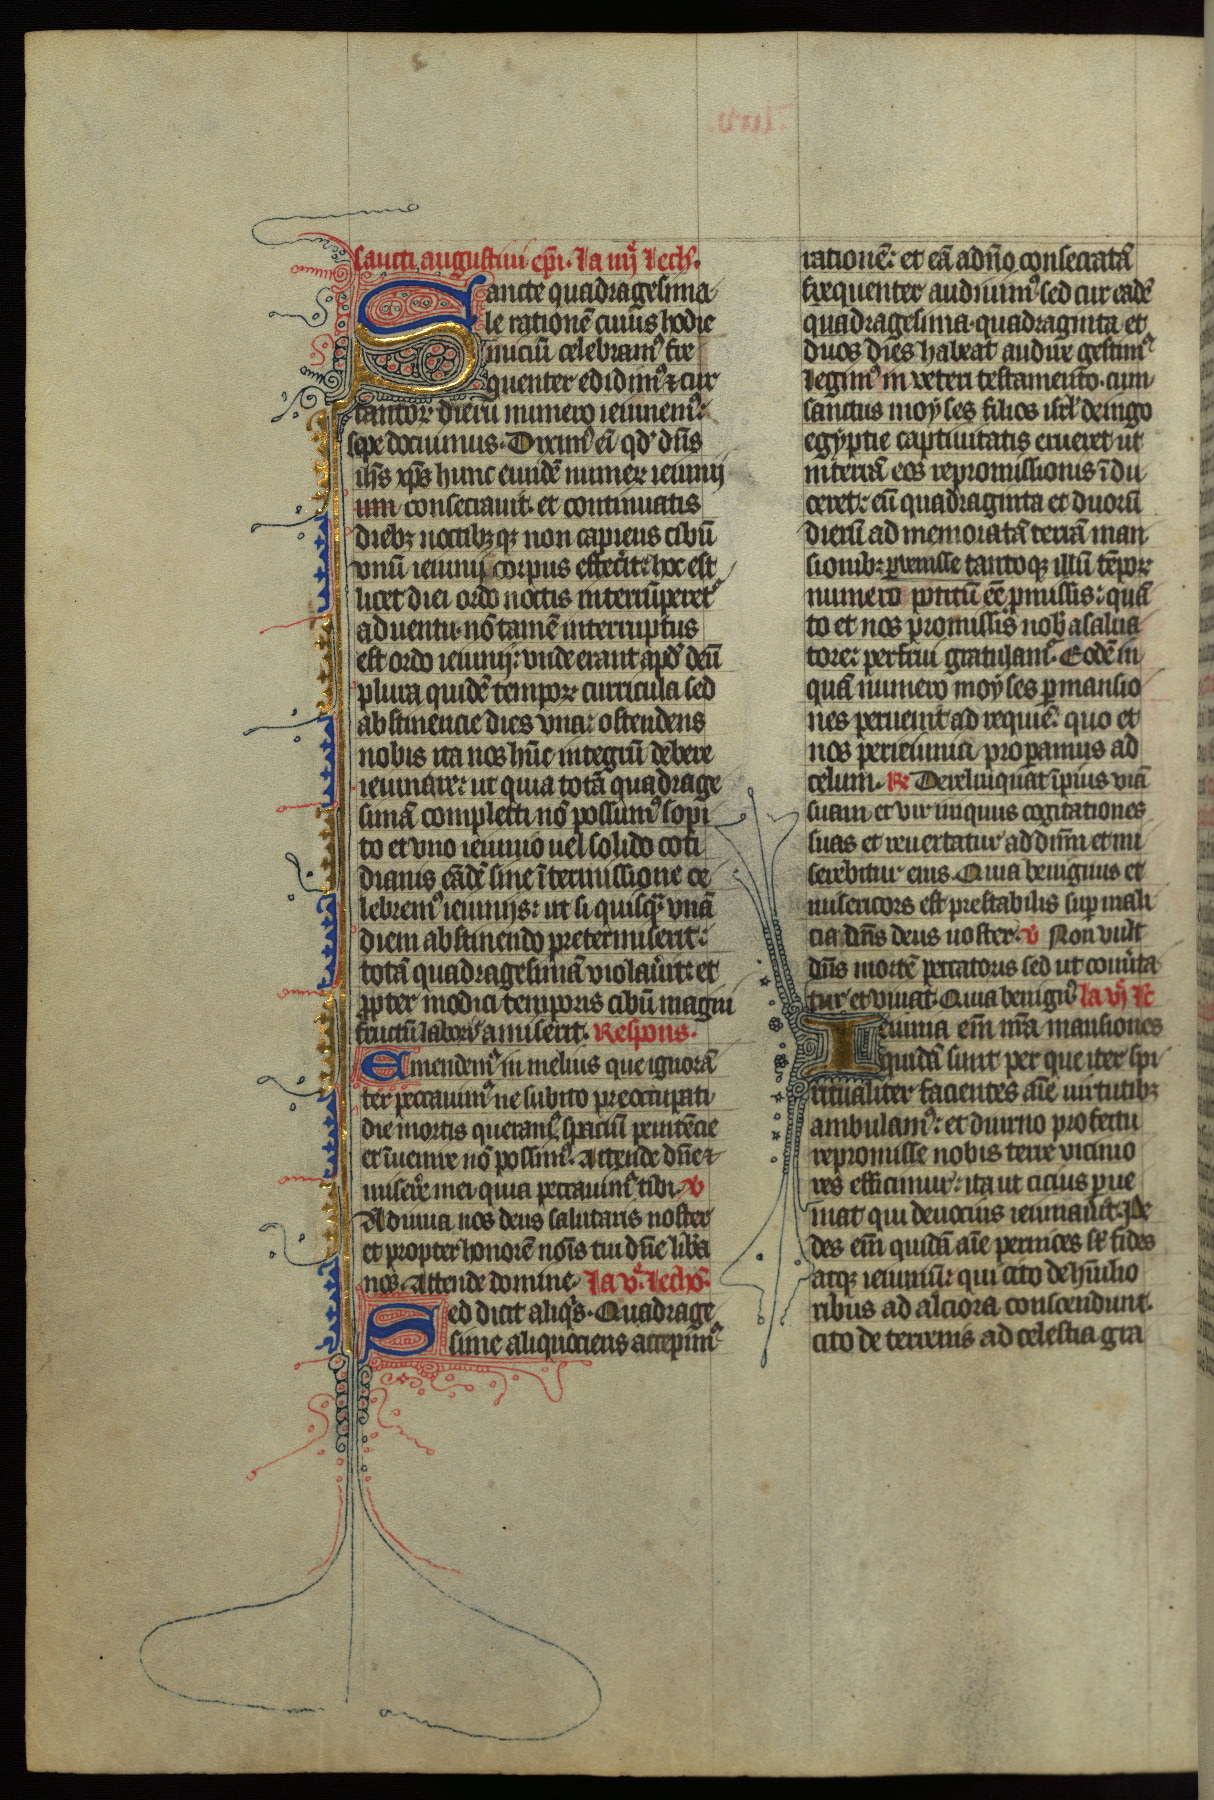 sancti augustini ep̄i. la iiij lech.
Sancte quadragesima
le rationē cuius hodie
iniciū celebramꝰ fre
quenter edidimꝰ ⁊ cur
tantoꝝ dierū numero ieiunemꝰ:
sepe docuimus. Diximꝰ eī qđ dn̄s
ih̄s xp̄s hunc eundē numeꝝ ieiunij
um consecrauit. et continuatis
diebꝫ noctibꝫqꝫ non capiens cibū
vnū ieiunij corpus effecit: hoc est
licet diei ordo noctis interrūperetꝰ
aduentu. nō tamē interruptus
est ordo ieiunij: vnde erant apđ deū
plura quidē tempoꝝ curricula sed
abstinencie dies vna: ostendens
nobis ita nos hūc integrū debere
ieiunare: ut quia totā quadrage
simā completti nō possumꝰ sopi
to et vno ieiunio uel solido coti
dianis eādē sine īterimissione ce
lebremꝰ ieiunijs: ut si quisqꝫ vnā
diem abstinendo pretermiserit:
totā quadragesimā violauit: et
ꝓpter modici temporis cibū magni
fructū laboris amiserit. Respons.
Emendemꝰ in melius que ignorā
ter peccauimꝰ ne subito preoccupati
die mortis queramꝰ spaciū penitēcie
et īuenire nō possimꝰ. Attende dn̄e ⁊
miserere mei quia peccauimꝰ tibi. v
Adiuua nos deus salutaris noster
et propter honorē noīs tui dn̄e libera
nos. Attende domine. la v. lechō.
Sed dicit aliqꝰs. Quadrage
sime aliquociens accepimꝰ
rationē: et eā adn̄o consecratā
frequenter audiuimꝰ sed cur eadē
quadragesima. quadraginta et
duos dies habeat audire gestimꝰ
legimꝰ in veteri testamento. cum
sanctus moyses filios isrl' de iugo
egyptie captiuitatis erueret ut
in terrā eos repromissionis īdu
ceret: eū quadraginta et duorū
dierū ad memoratā terrā man
sionibꝫ ꝑuenisse tantoqꝫ illū tēpoꝝ
numero potitū eē ꝓmissis: quā
to et nos promissis nob̄ a salua
tore: perfrui gratulamꝰ. Eodē in
quā numero moyses ꝑ mansio
nes peruenit ad requiē: quo et
nos per ieiunia properamus ad
celum. Re Derelinquat īpius viā
suam et vir iniquus cogitationes
suas et reuertatur ad dn̄m et mi
serebitur eius. Quia benignus et
misericors est prestabilis sup mali
cia dn̄s deus noster. v Non vult
dn̄s mortē peccatoris sed ut conuerta
tur et viuat. Quia benignꝰ la vj le
Ieiunia em̄ nr̄a mansiones
quidā sunt per que iter spi
ritualiter facientes aīe uirtutibꝫ
ambulamꝰ: et diurno profectu
repromisse nobis terre vicinio
res efficimur: ita ut cicius ꝑue
niat qui deuocius ieiunauerit. Pe
des em̄ quidā aīe pernices st̄ fides
atqꝫ ieiuniū: qui cito de humilio
ribus ad alciora conscendunt.
cito de terrenis ad celestia gra